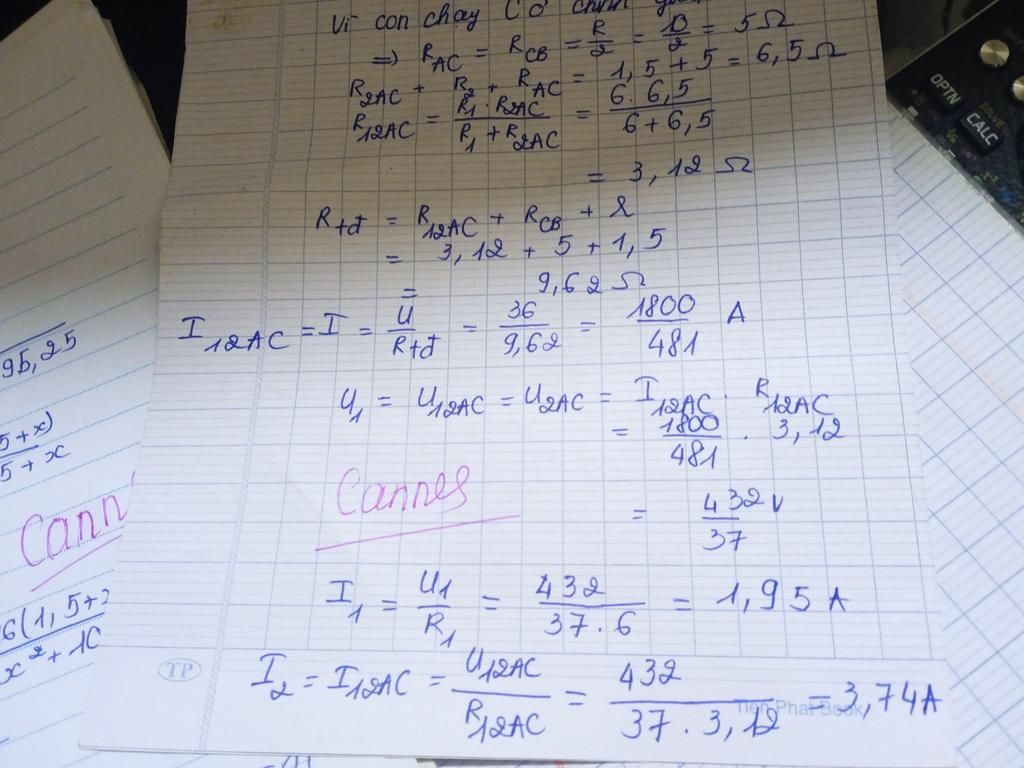 Vì con chạy C ở chính giữa
=> R_AC = R_CB = R/2 = 10/2 = 5 Ω
R_2AC + R_2 + R_AC = 1,5 + 5 = 6,5 Ω
R_12AC = (R_1 . R_2AC)/(R_1 + R_2AC) = (6. 6,5)/(6 + 6,5)
= 3,12 Ω
R_tđ = R_12AC + R_CB + r
= 3,12 + 5 + 1,5
= 9,62 Ω
I_12AC = I = U/R_tđ = 36/9,62 = 1800/481 A
U_1 = U_12AC = U_2AC = I_12AC . R_12AC
= 1800/481 . 3,12
Cannes
= 432/37 V
I_1 = U_1/R_1 = 432/(37.6) = 1,95 A
I_2 = I_12AC = U_12AC/R_12AC = 432/(37 . 3,12) = 3,74A
TP
Tiến Phát Book
95,25
5+x)
5+x
Cann
6(1,5+
x² + 10
OPTN
CALC
SOLVE